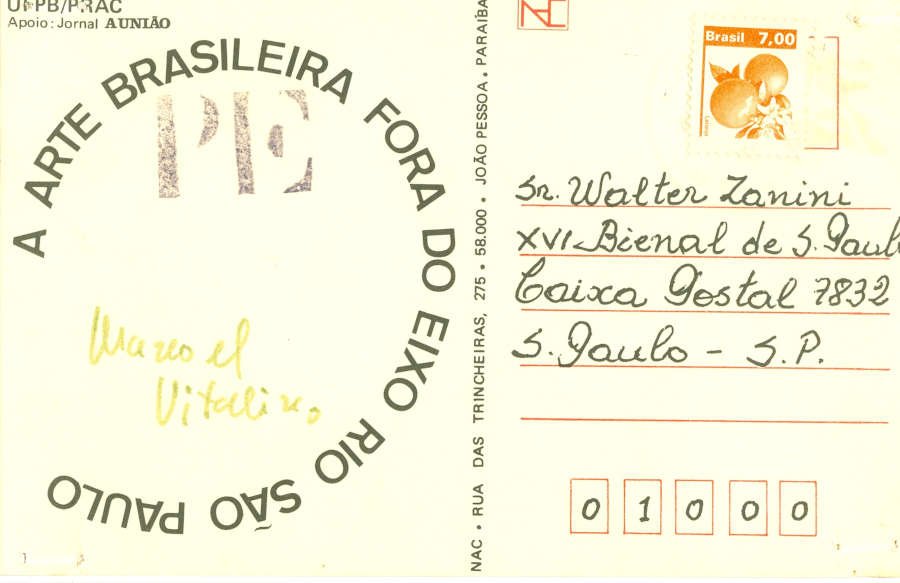 UFPB/PRAC
Apoio: Jornal A UNIÃO
A ARTE BRASILEIRA FORA DO EIXO RIO SÃO PAULO
PE
Manoel
Vitalino
NAC • RUA DAS TRINCHEIRAS, 275 • 58.000 • JOÃO PESSOA • PARAÍBA
Brasil 7,00
Sr. Walter Zanini
XVI Bienal de S. Paulo
Caixa Postal 7832
S. Paulo - S.P.
0 1 0 0 0